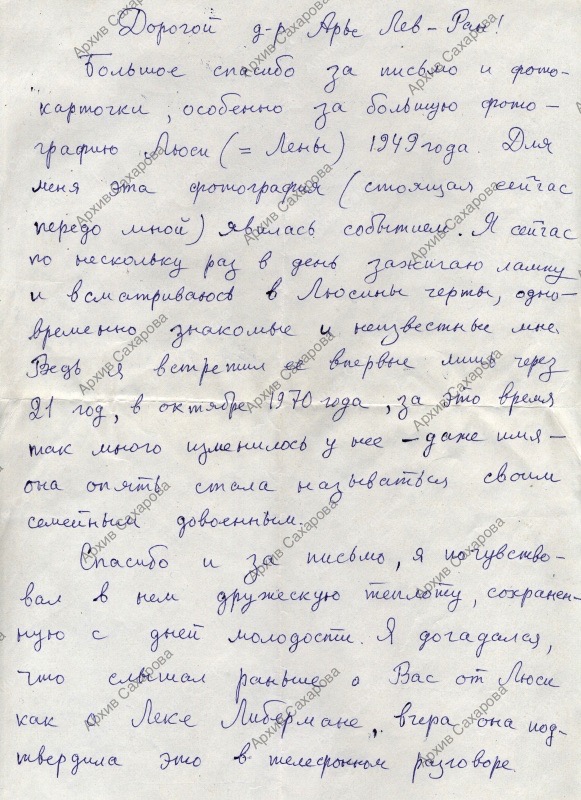 Дорогой д-р Арье Лев-Ран!
Большое спасибо за письмо и фото-
карточки, особенно за большую фото-
графию Люси (= Лены) 1949 года. Для
меня эта фотография (стоящая сейчас
передо мной) явилась событием. Я сейчас
по нескольку раз в день зажигаю лампу
и всматриваюсь в Люсины черты, одно-
временно знакомые и неизвестные мне.
Ведь я встретил ее впервые лишь через
21 год, в октябре 1970 года, за это время
так много изменилось у нее – даже имя –
она опять стала называться своим
семейным довоенным.
Спасибо и за письмо, я почувство-
вал в нем дружескую теплоту, сохранен-
ную с дней молодости. Я догадался,
что слышал раньше о Вас от Люси
как о Леке Либермане, вчера она под-
твердила это в телефонном разговоре.
Архив Сахарова